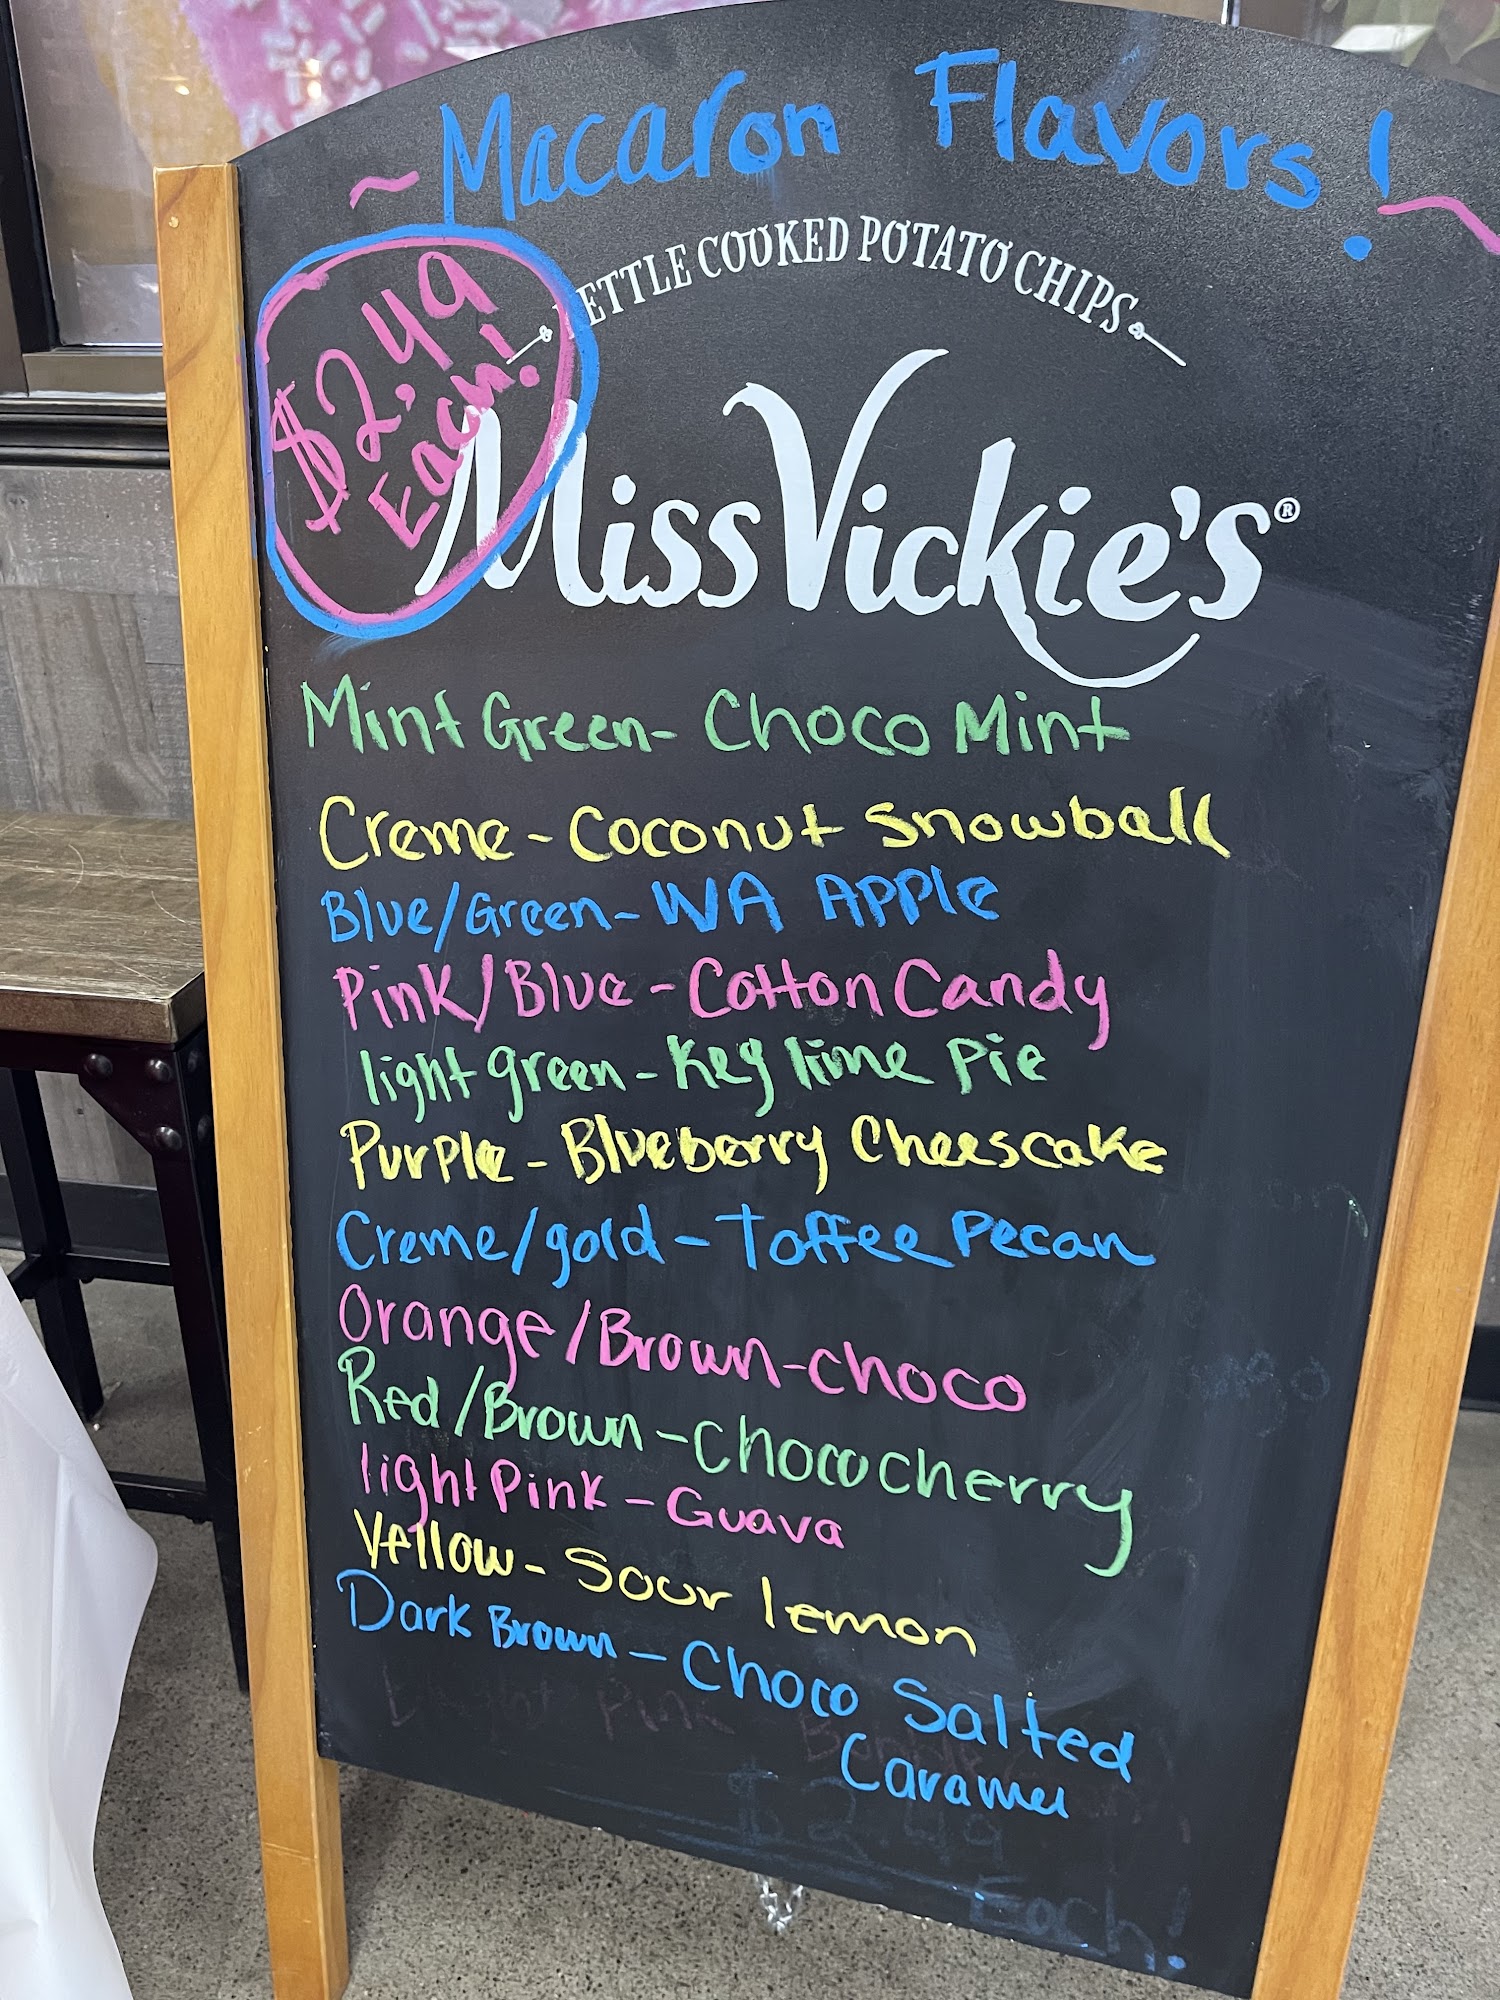 ~Macaron Flavors!~
KETTLE COOKED POTATO CHIPS
$2.49
Each!
Miss Vickie's®
Mint Green- Choco Mint
Creme - Coconut Snowball
Blue/Green- WA Apple
Pink/Blue - Cotton Candy
light green - Key lime Pie
Purple - Blueberry Cheescake
Creme/gold - Toffee Pecan
Orange/Brown-choco
Red/Brown - Choco cherry
light Pink - Guava
Yellow - Sour lemon
Dark Brown - Choco Salted
Caramel
Light Pink
$2.49
Each!